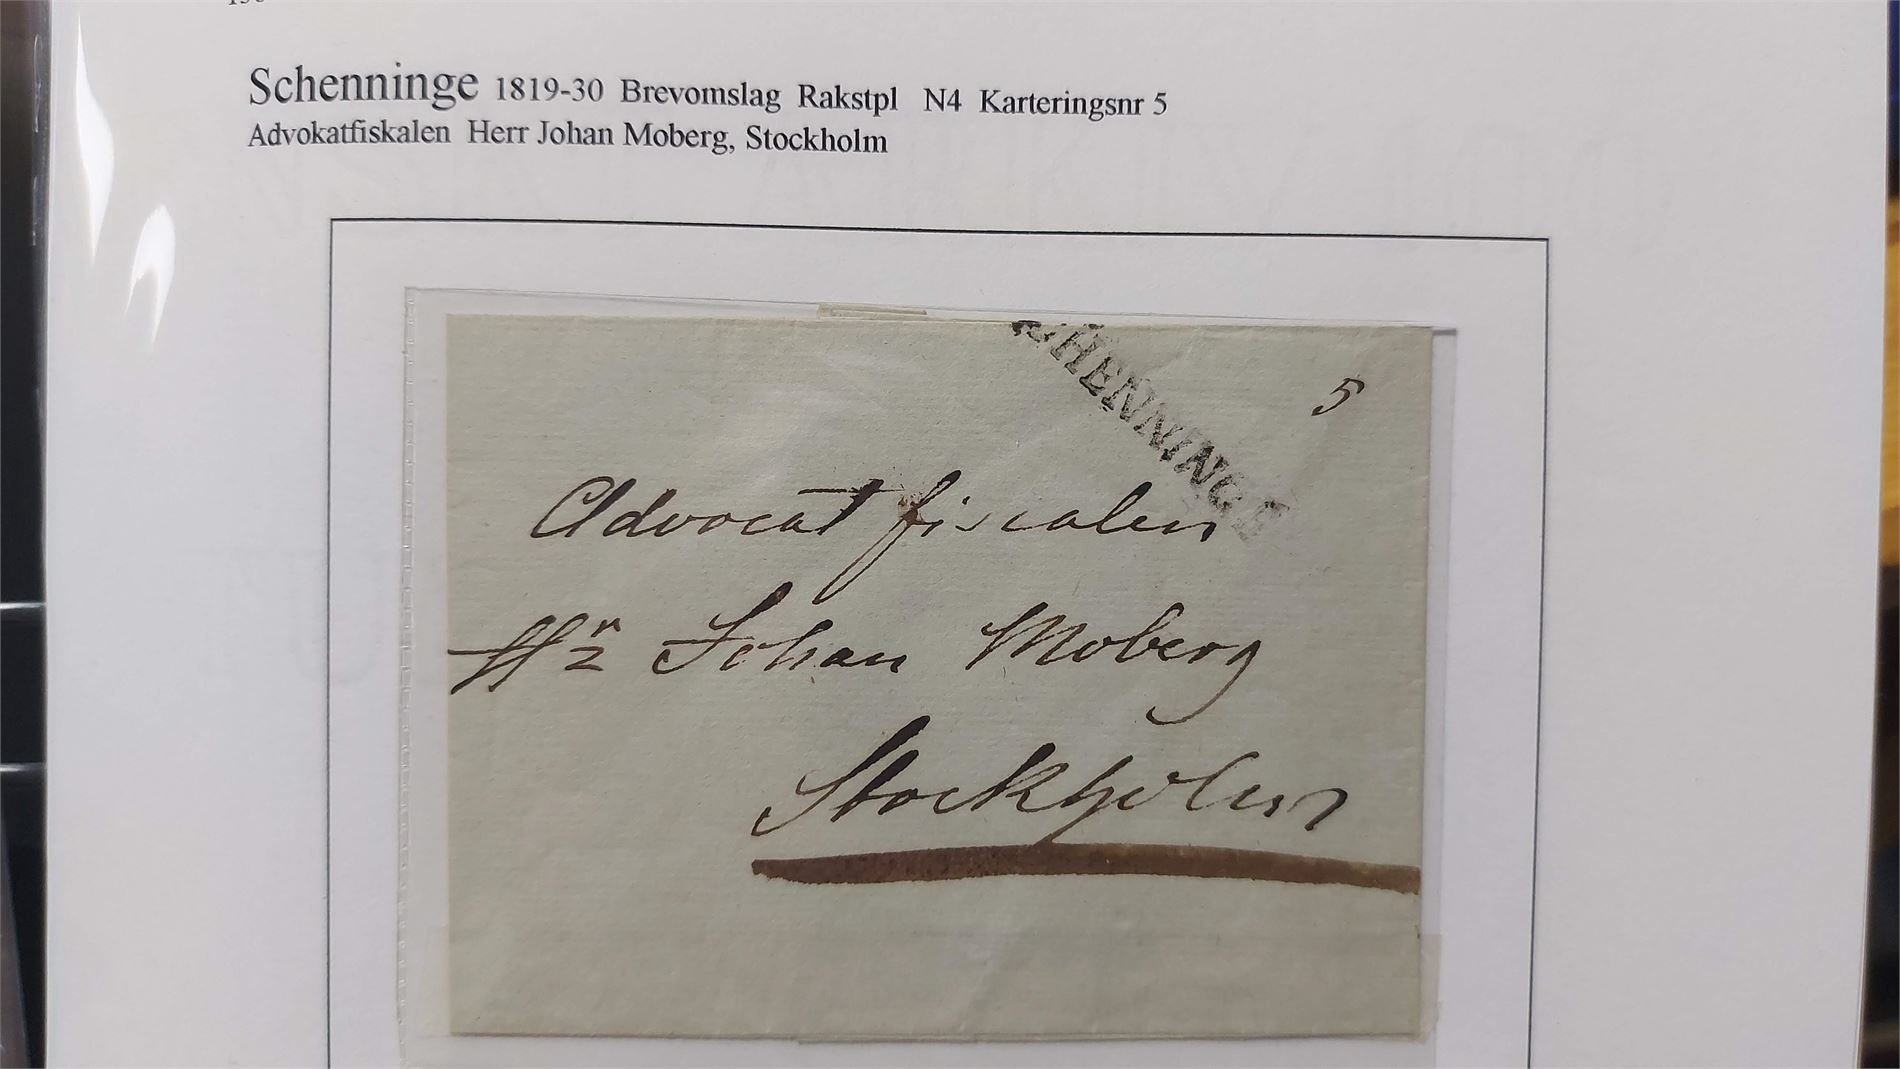 Schenninge 1819-30 Brevomslag Rakstpl N4 Karteringsnr 5
Advokatfiskalen Herr Johan Moberg, Stockholm
CHENNINGE
5
Advocat fiscalen
Hr Johan Moberg
Stockholm